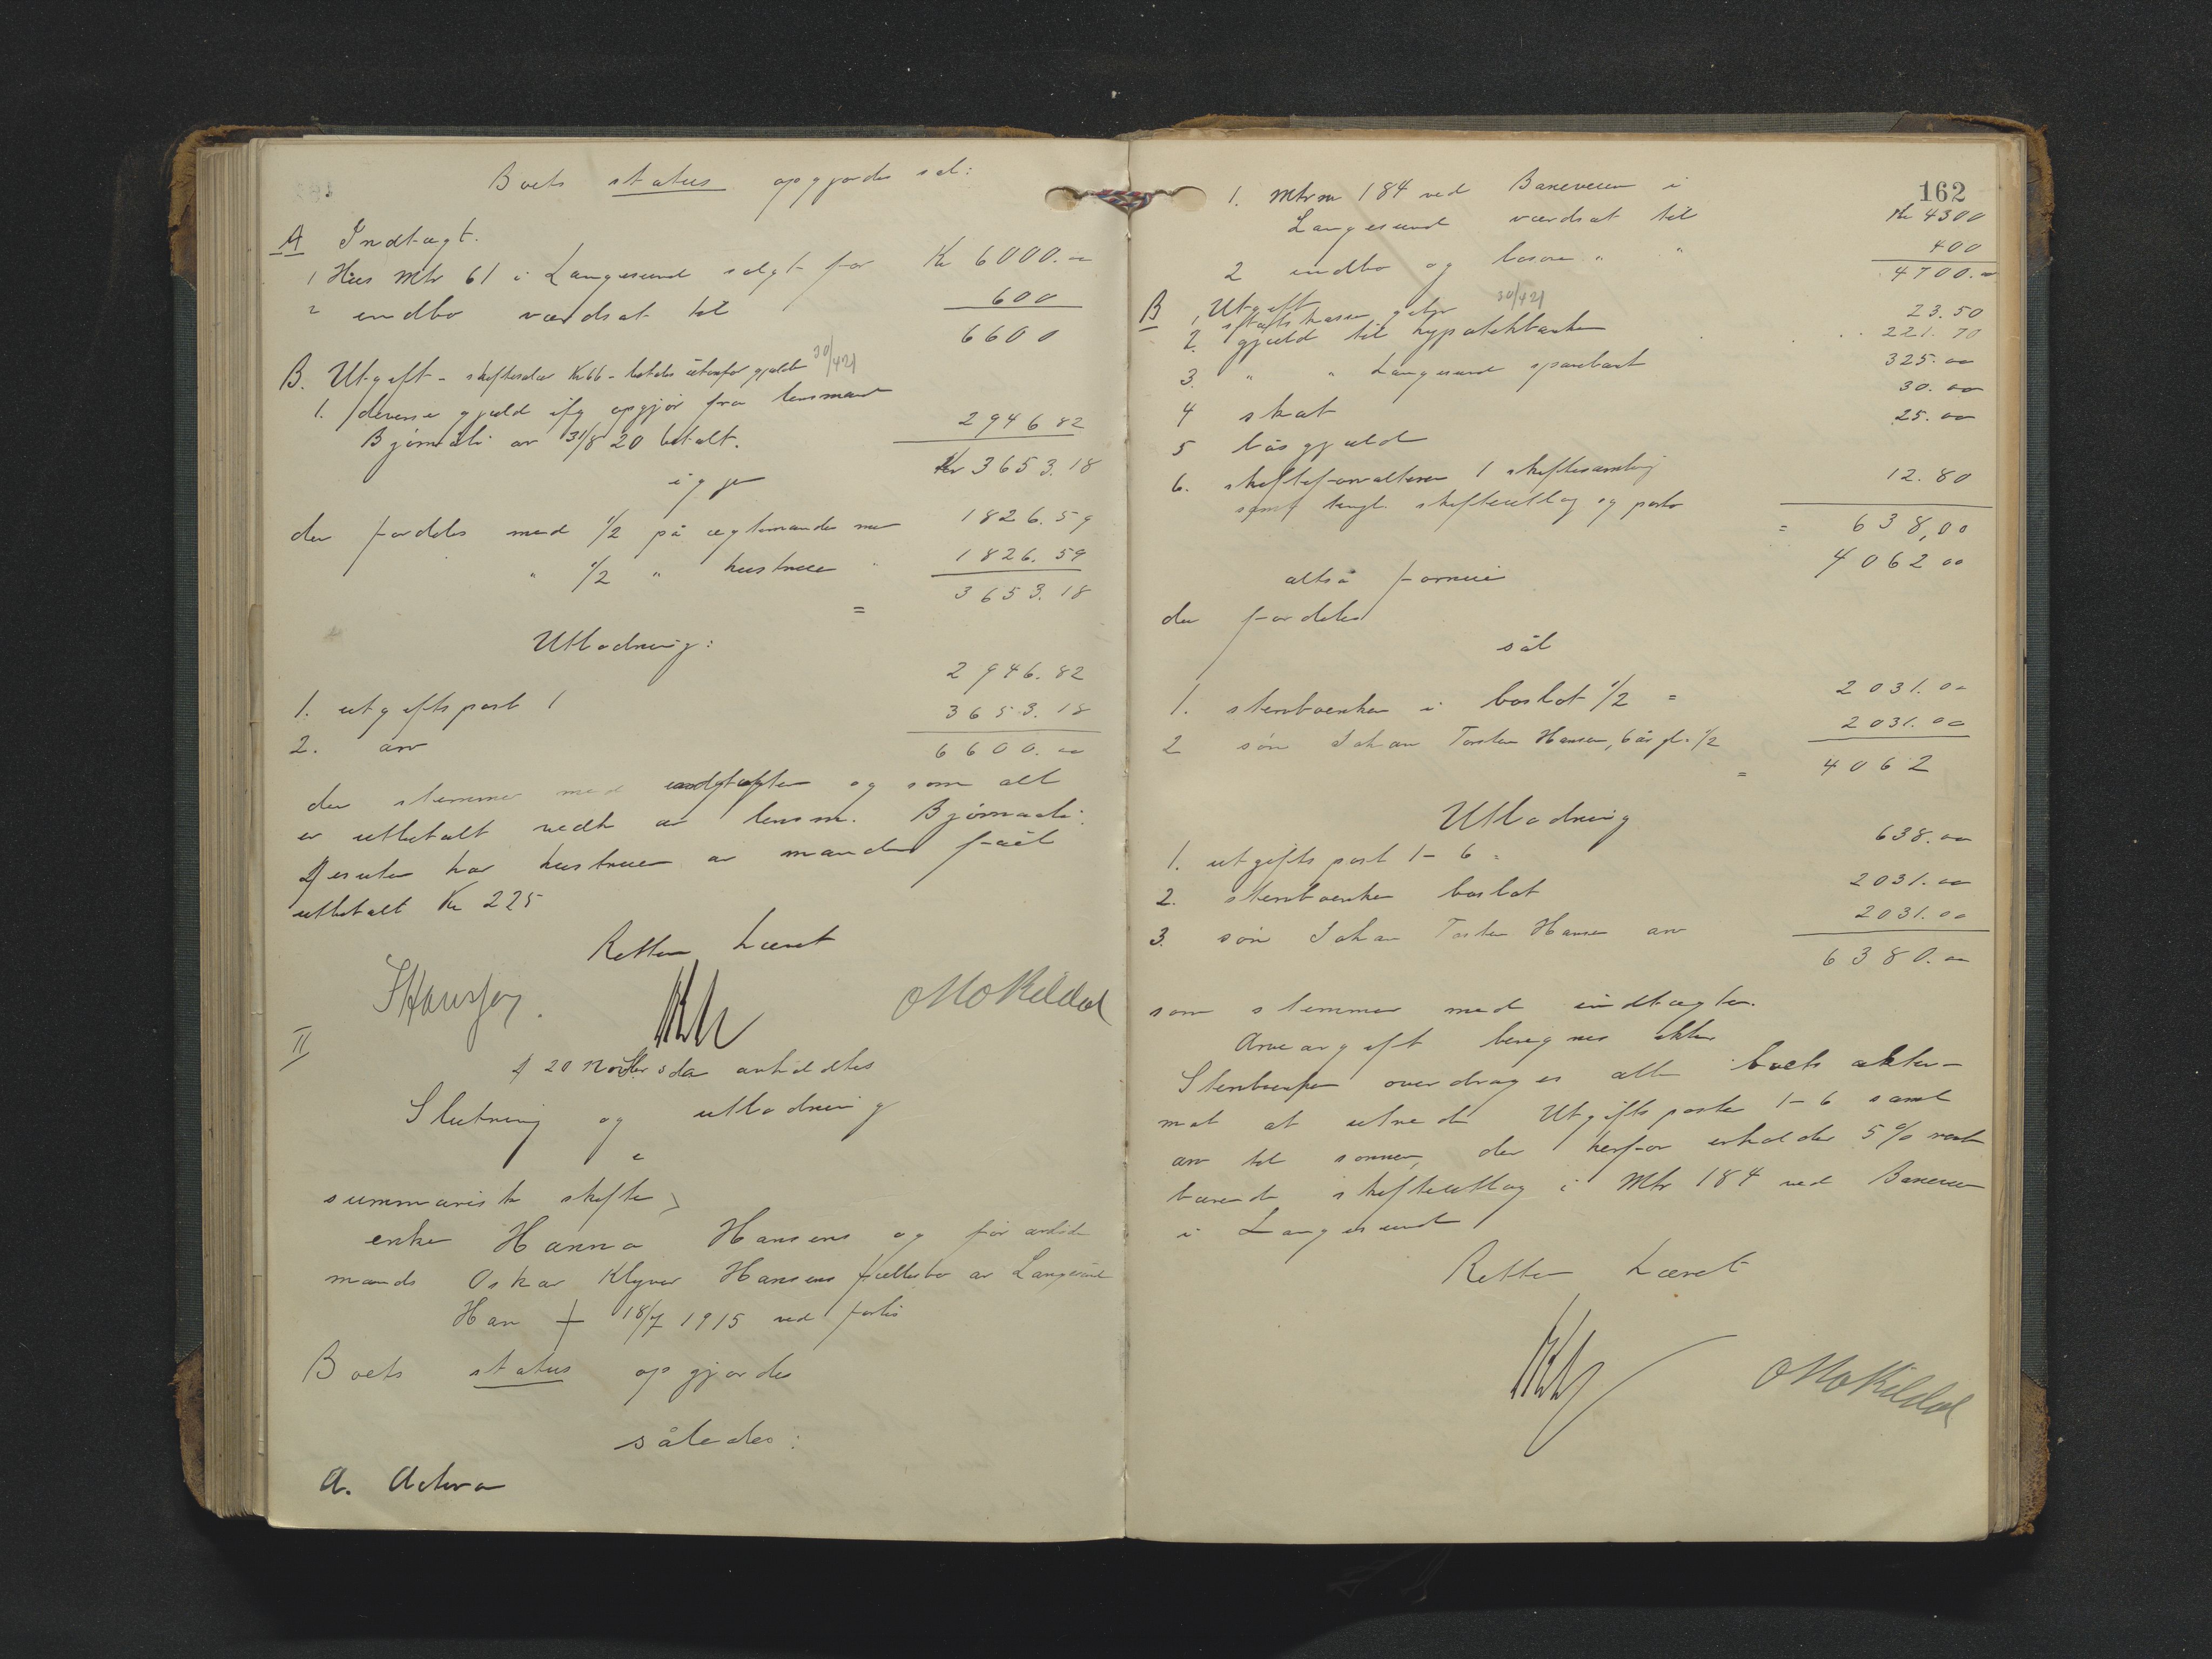 Boets status opgjordes sål:
A Indtægt.
1 Hus Mtr 61 i Langesund solgt for Kr 6000.00
2 indbo værdsat til 600
6600
B. Utgift - skiftesalær Kr 66 - betales utenfor gjelden 30/421
1. diverse gjæld ifg opgjør fra lensmand
Bjørnåli av 31/8 20 betalt. 2946 82
igjen Kr 3653.18
der fordeles med 1/2 på ægtemanden med 1826.59
" 1/2 " hustruen " 1826.59
= 3653.18
Utlodning:
1. utgiftspost 1 2946.82
2. arv 3653.18
6600.00
der stemmer med indtægten og som alt
er utbetalt vedk av lensm. Bjørnaali.
Desuten har hustruen av manden fåt
utbetalt Kr 225
Retten hævet
Otto Kildal
II
Å 20 Novbr s da avholdtes
Slutning og utlodning
i
summarisk skifte
enke Hanna Hansens og før avdøde
mands Oskar Klyver Hansens fællesbo av Langesund
Han + 18/7 1915 ved forlis
Boets status opgjordes
således:
A. Activa
162
1. Mtr nr 184 ved Baneveien i
Langesund værdsat til Kr 4300
2 indbo og løsøre " " 400
4700.00
B Utgift 30/421
1, skiftets kasse gebyr 23.50
2. gjæld til hypotekbanken 221.70
3. " " Langesund sparebank 325.00
4 skat 30.00
5 læsgjæld 25.00
6. skifteforvalteren 1 skiftesamling
samt tingl. skifteutlæg og porto 12.80
= 638,00
altså formue 4062 00
der fordeles
sål
1. stervboenken i boslot 1/2 = 2031.00
2 søn Johan Torsten Hansen, 6 år gl. 1/2 2031.00
= 4062
Utlodning
1. utgifts post 1-6 = 638.00
2. stervboenken boslot 2031.00
3. søn Johan Torsten Hansen arv 2031.00
6380.00
som stemmer med indtægten.
Arveavgift beregnes ikke
Stervboenken overdrages alle boets akter-
mot at utrede Utgifts poster 1-6 samt
arv til sønnen, der herfor erholder 5% rente
bærende skifteutlæg i Mtr 184 ved Baneveien
i Langesund
Retten hævet
Otto Kildal